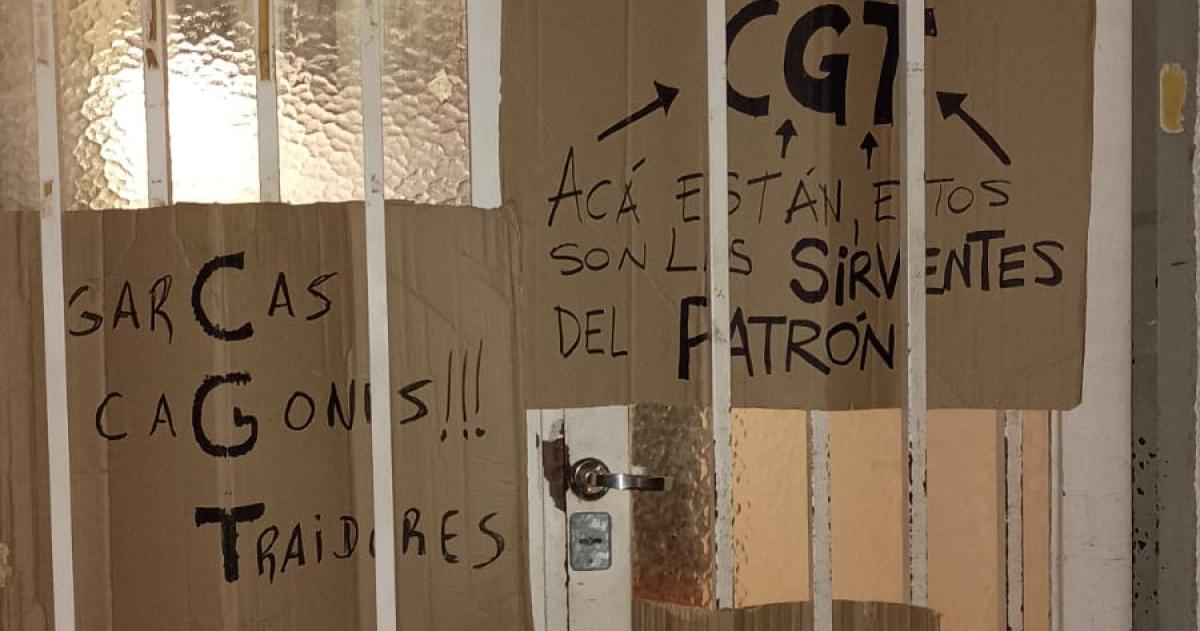 GARCAS
CAGONES!!!
TRAIDORES
CGT
ACÁ ESTÁN, ESTOS
SON LOS SIRVIENTES
DEL PATRÓN